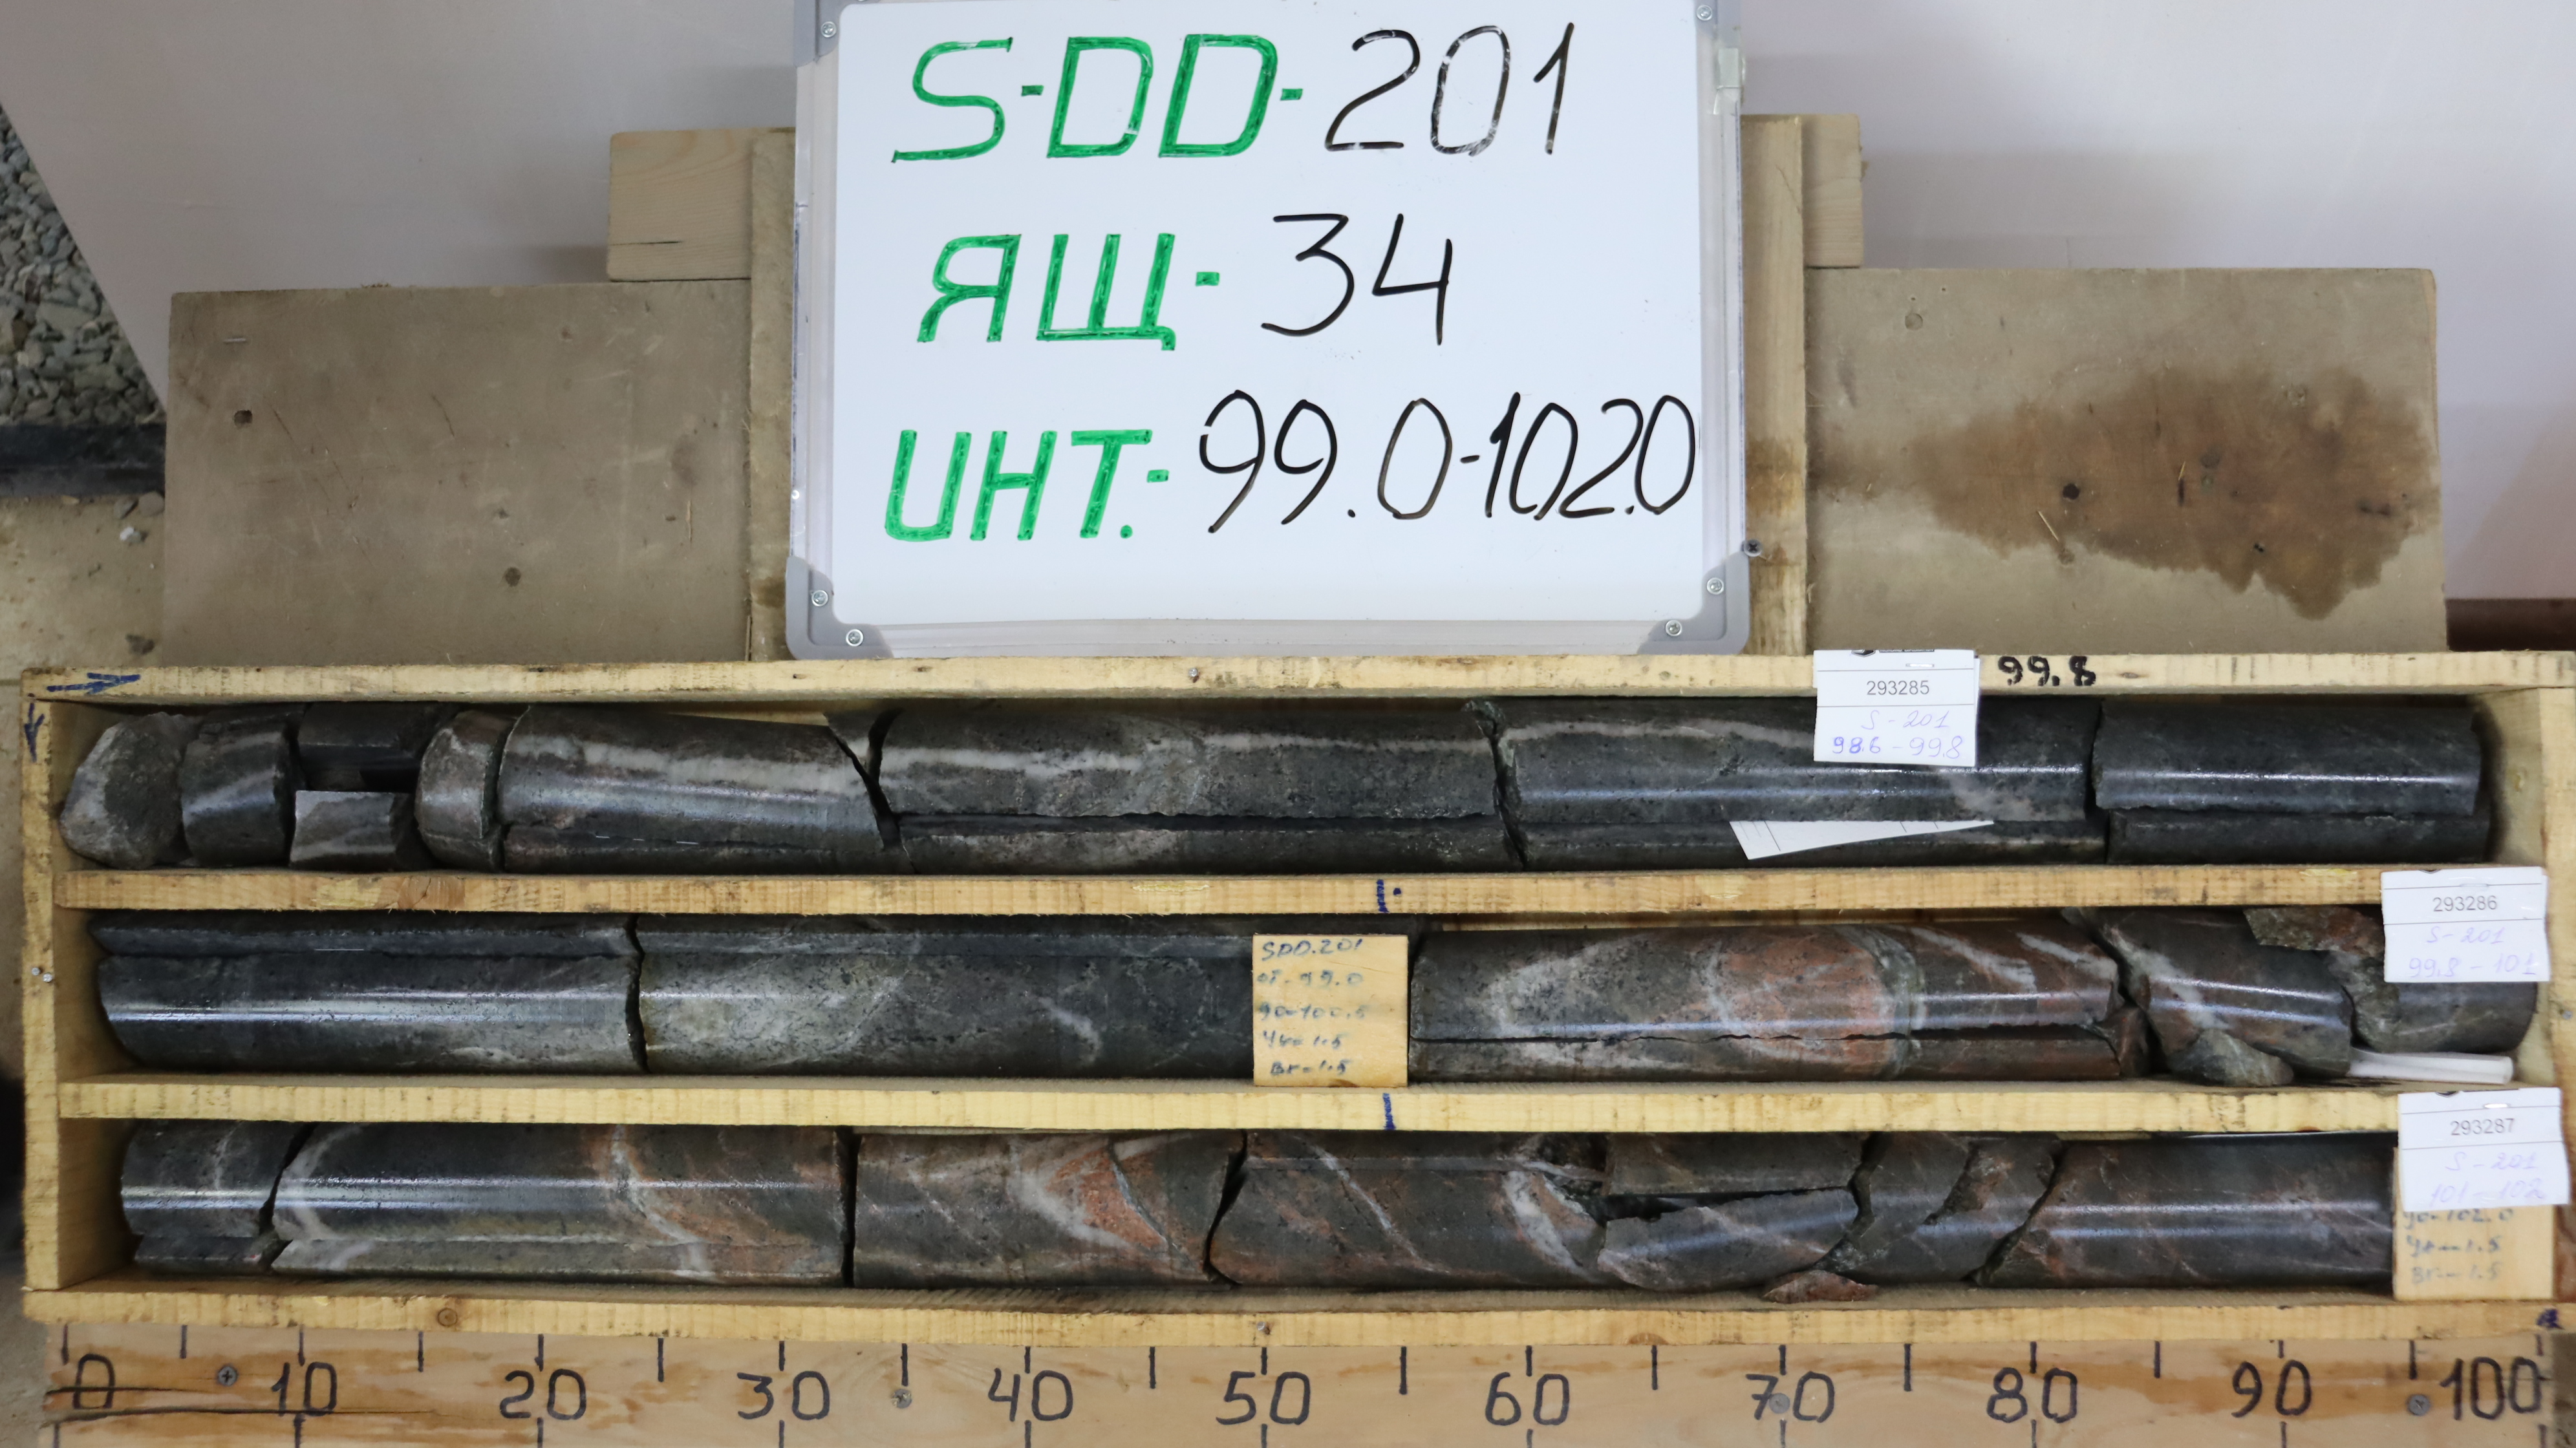 S-DD-201
ЯЩ- 34
ИНТ.- 99.0-102.0
99.8
293285
S-201
98.6-99.8
293286
S-201
99.8-101
SDD.201
от-99.0
до-100.5
Ув-1.5
Вк-1.5
293287
S-201
101-102
до-102.0
Ув-1.5
Вк-1.5
0 10 20 30 40 50 60 70 80 90 100